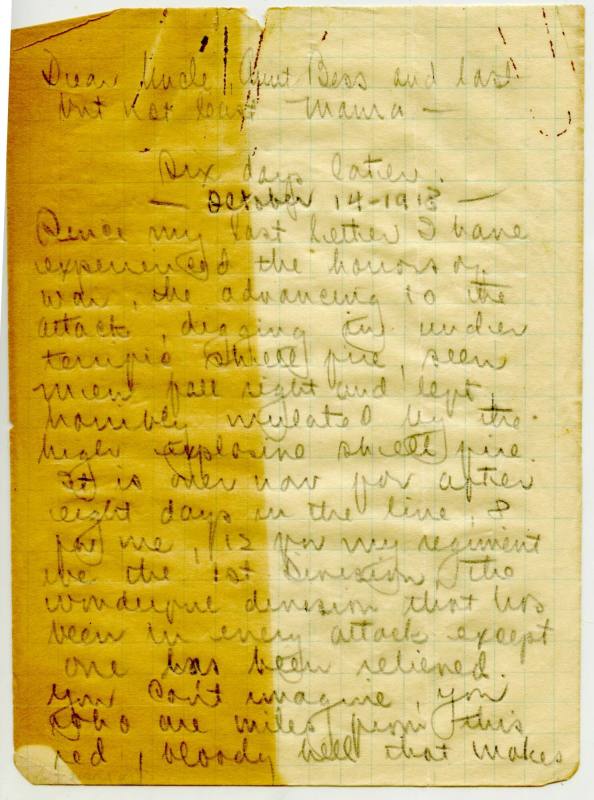 Dear Uncle, Aunt Bess and last
but not least Mama —
Six days later.
— October 14-1918 —
Since my last letter I have
experienced the horrors of
war, the advancing to the
attack, digging in under
terrific shell fire, seen
men fall right and left
horribly mulated by the
high explosive shell fire.
It is over now for after
eight days in the line, 8
for me, 12 for my regiment
we the 1st Division, the
wonderful division that has
been in every attack except
one has been relieved.
You can't imagine, you
who are miles from this
red, bloody hell that makes